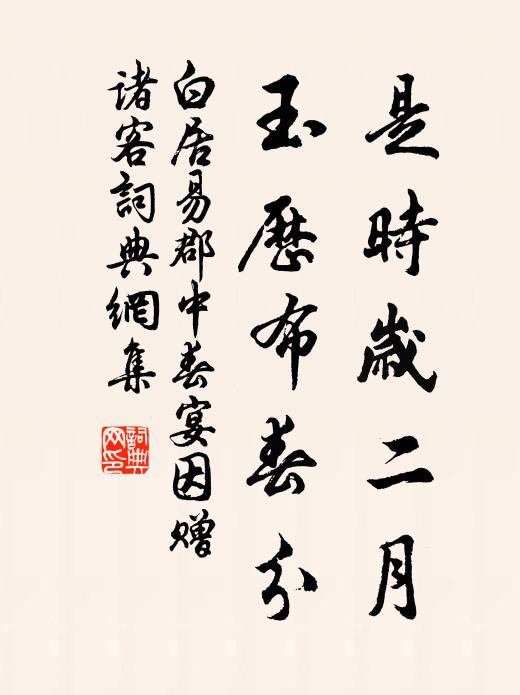 是時歲二月
玉歷布春分
白居易郡中春宴因贈
諸客詞典網集
詞典
网印